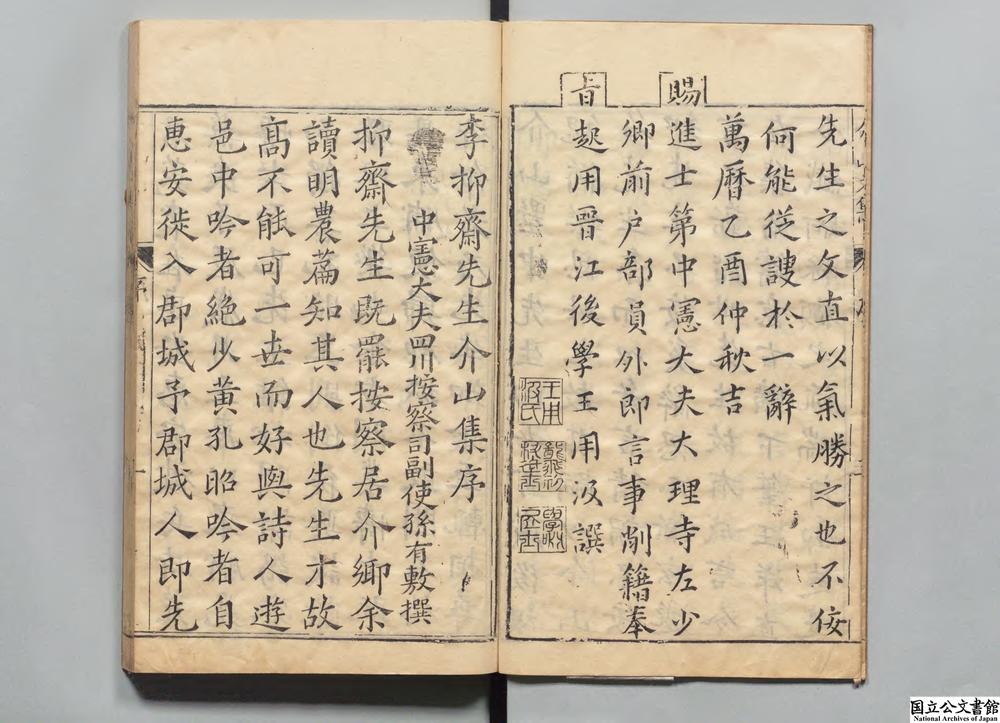 先生之文直以氣勝之也不佞
何能從謏於一辭
萬曆乙酉仲秋吉
賜
進士第中憲大夫大理寺左少
卿前户部員外郎言事削籍奉
旨
起用晉江後學王用汲譔
王用汲氏
李抑齋先生介山集序
中憲大夫四川按察司副使孫有敷撰
抑齋先生既罷按察居介鄉余
讀明農篇知其人也先生才故
高不能可一世而好與詩人遊
邑中吟者絶少黄孔昭吟者自
惠安徙入郡城予郡城人即先
序
一
国立公文書館
National Archives of Japan